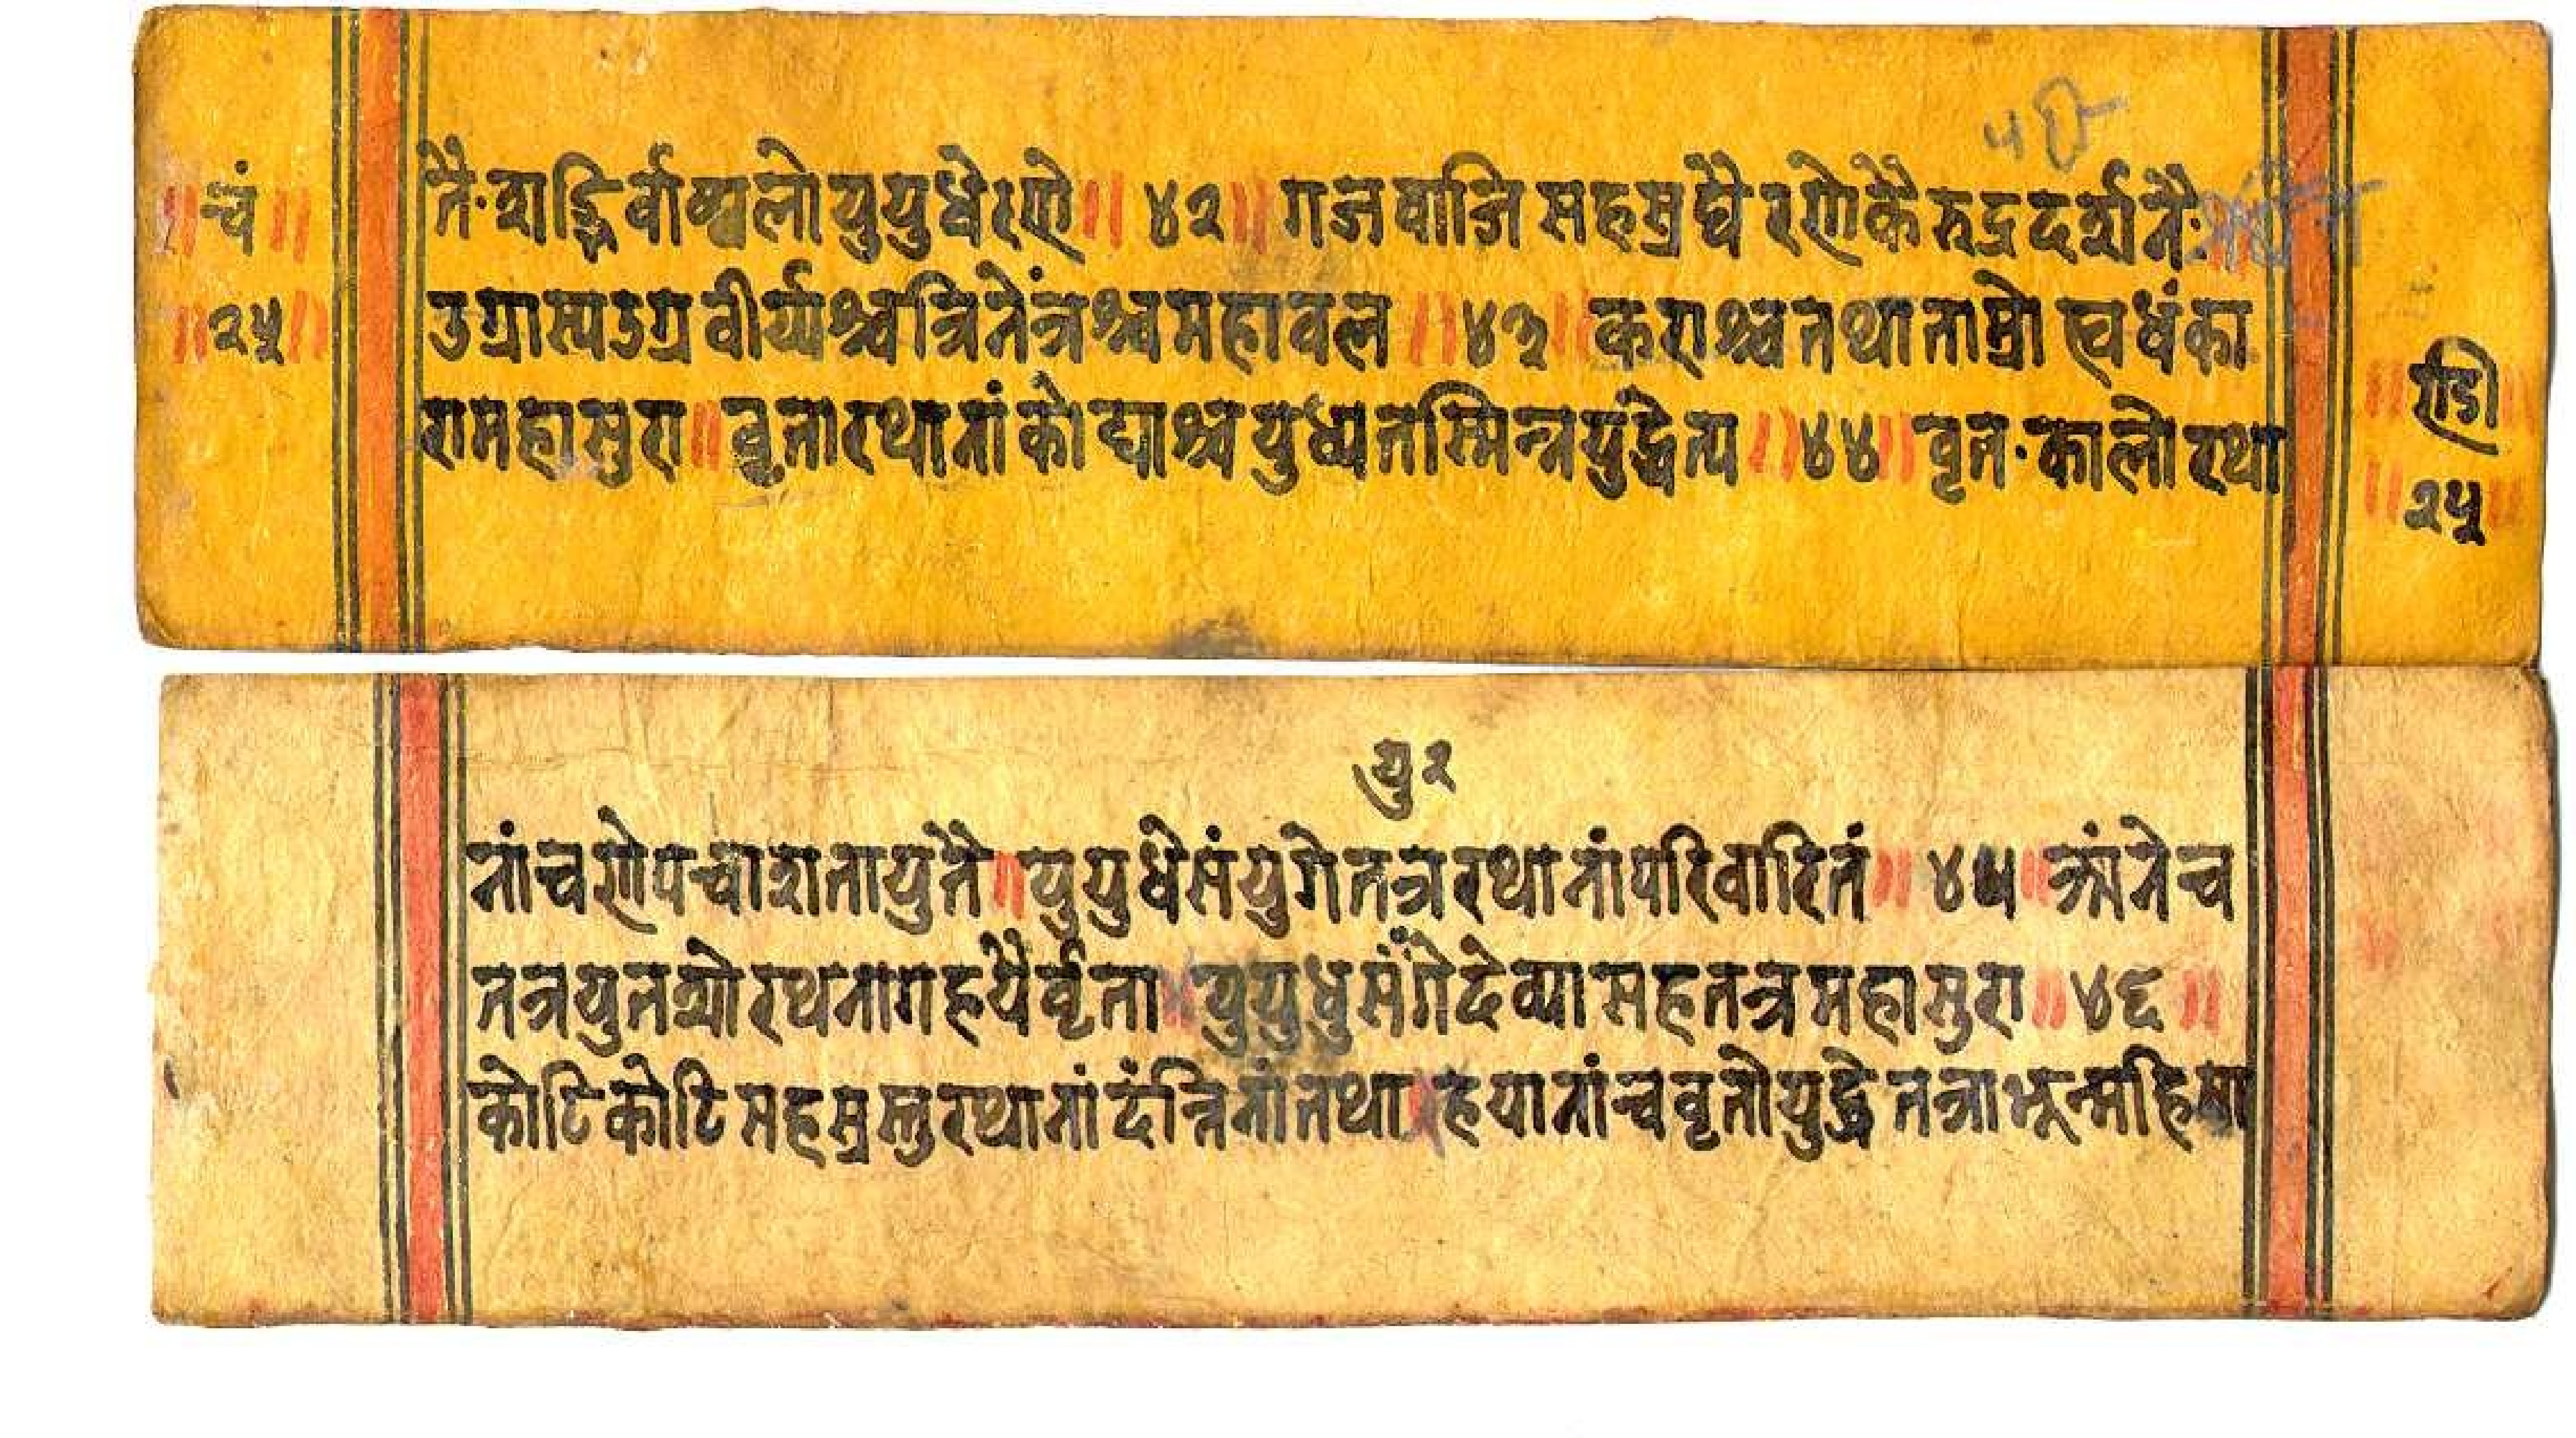 ॥ चं ॥
॥ २५ ॥
तैः शद्भिर्वाष्कलो युयुधे रणे ॥ ४२ ॥ गजवाजि सहस्रघै रणेकै रुद्र दर्शनैः ॥
उग्रास्य उग्र वीर्य्यश्च त्रिनेंत्रश्च महावल ॥ ४३ ॥ कराश्च तथा ताम्रो स्वधंका
रा महासुरा ॥ वृता रथानां कोद्याश्च युध्यतस्मिन्त्रयुंद्धेत्य ॥ ४४ ॥ वृतः कालो रथा
॥ रडी ॥
॥ २५ ॥
यु २
नां च रणे पञ्चाशतायुतै ॥ युयुधे संयुगे तत्र रथानां परिवारितं ॥ ४५ ॥ अंने च
तत्र युतश्रो रथनागहयैर्वृता युयुधु संगे देव्या सह तत्र महासुरा ॥ ४६ ॥
कोटि कोटि सहस्रस्तु रथानां दंन्तिनां तथा हयानां च वृतो युद्धे तत्राभून्महिषा